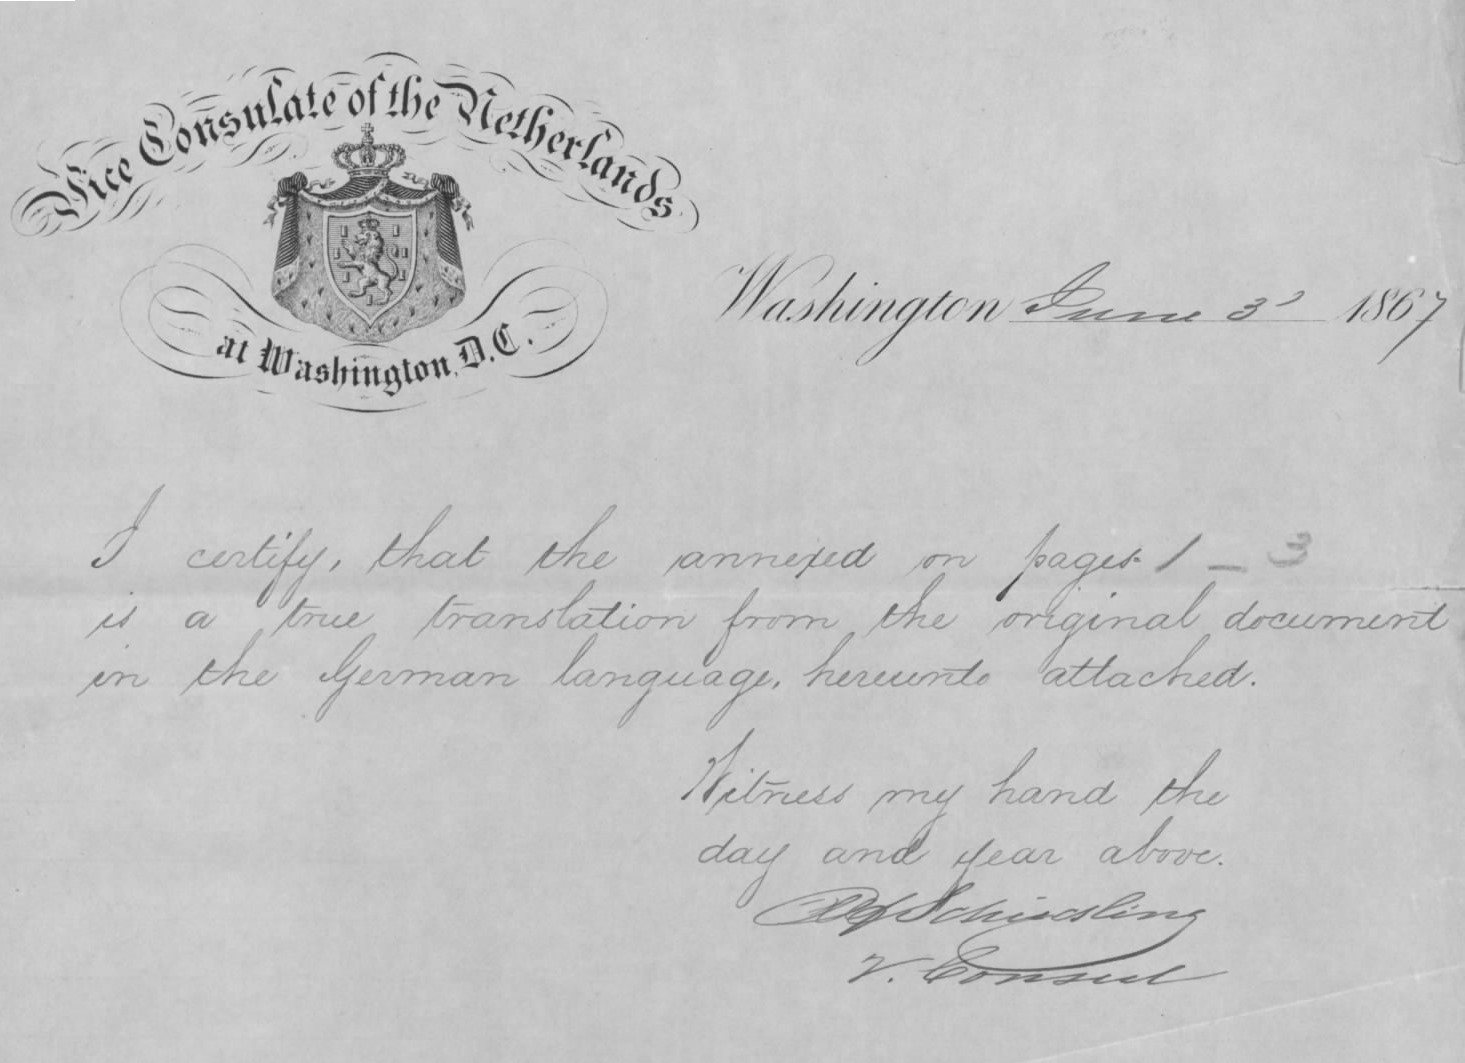 Vice Consulate of the Netherlands
at Washington, D.C.
Washington June 3 1867
I certify, that the annexed on pages 1 _ 3
is a true translation from the original document
in the German language, hereunto attached.
Witness my hand the
day and year above.
Schiessling
V. Consul